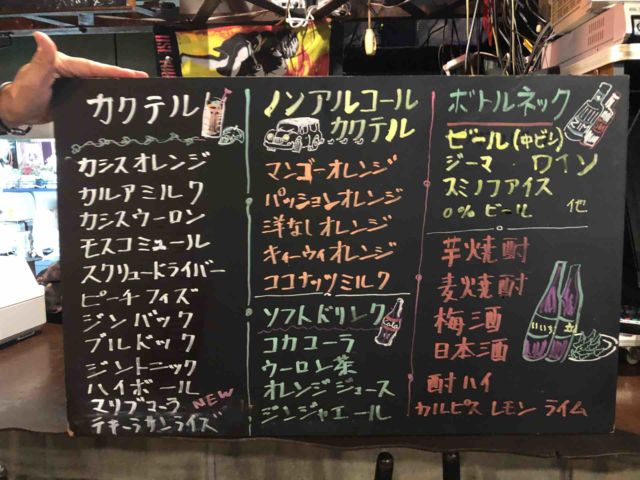 カクテル
カシスオレンジ
カルアミルク
カシスウーロン
モスコミュール
スクリュードライバー
ピーチフィズ
ジンバック
ブルドック
ジントニック
ハイボール
マリブコーラ NEW
テキーラサンライズ
ノンアルコール
カクテル
マンゴーオレンジ
パッションオレンジ
洋なしオレンジ
キィーウィオレンジ
ココナッツミルク
ソフトドリンク
コカコーラ
ウーロン茶
オレンジジュース
ジンジャエール
ボトルネック
ビール(中ビン)
ジーマ・ワイン
スミノフアイス
0%ビール 他
芋焼酎
麦焼酎
梅酒
日本酒
酎ハイ
カルピス レモン ライム